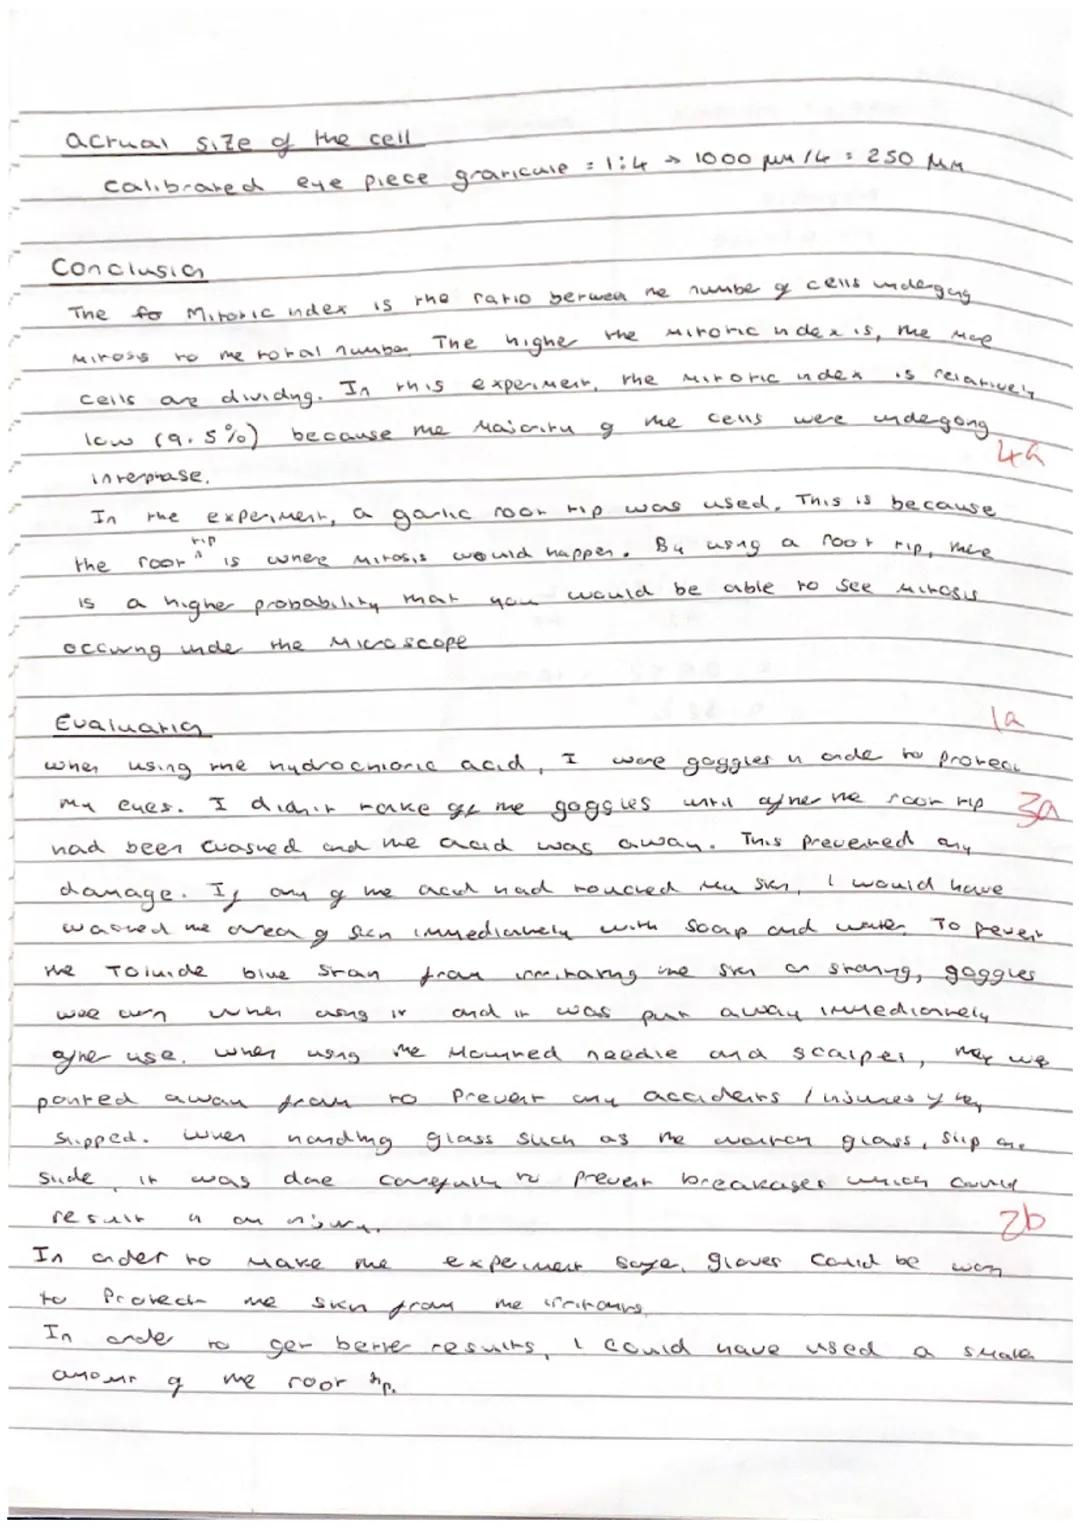 Actual size of the cell
Calibrated eye piece graticule = 1:4 → 1000 µm / 4 = 250 µm
Conclusion
The fo Mitotic index is the ratio between the number of cells undergoing
mitosis to the total number. The higher the mitotic index is, the more
cells are dividing. In this experiment, the mitotic index is relatively
low (9.5%) because the majority of the cells were undergoing
4a
interphase.
In the experiment, a garlic root tip was used. This is because
the root tip is where mitosis would happen. By using a root tip, there
is a higher probability that you would be able to see mitosis
occuring under the microscope
1a
Evaluation
When using the hydrochloric acid, I wore goggles in order to protect
my eyes. I didn't take off the goggles until after the root tip
3a
had been washed and the acid was away. This prevented any
damage. If any of the acid had touched my skin, I would have
washed the area of skin immediately with soap and water. To prevent
the Toluide blue stain from irritating the skin or staining, goggles
were worn when using it and it was put away immediately
after use. When using the mounted needle and scalpel, they we
pointed away from to prevent any accidents / injuries if they
slipped. When handling glass such as the watch glass, slip and
slide, it was done carefully to prevent breakages which could
result in an injury.
2b
In order to make the experiment safe, gloves could be worn
to protect the skin from the irritants.
In order to get better results, I could have used a smaller
amount of the root tip.